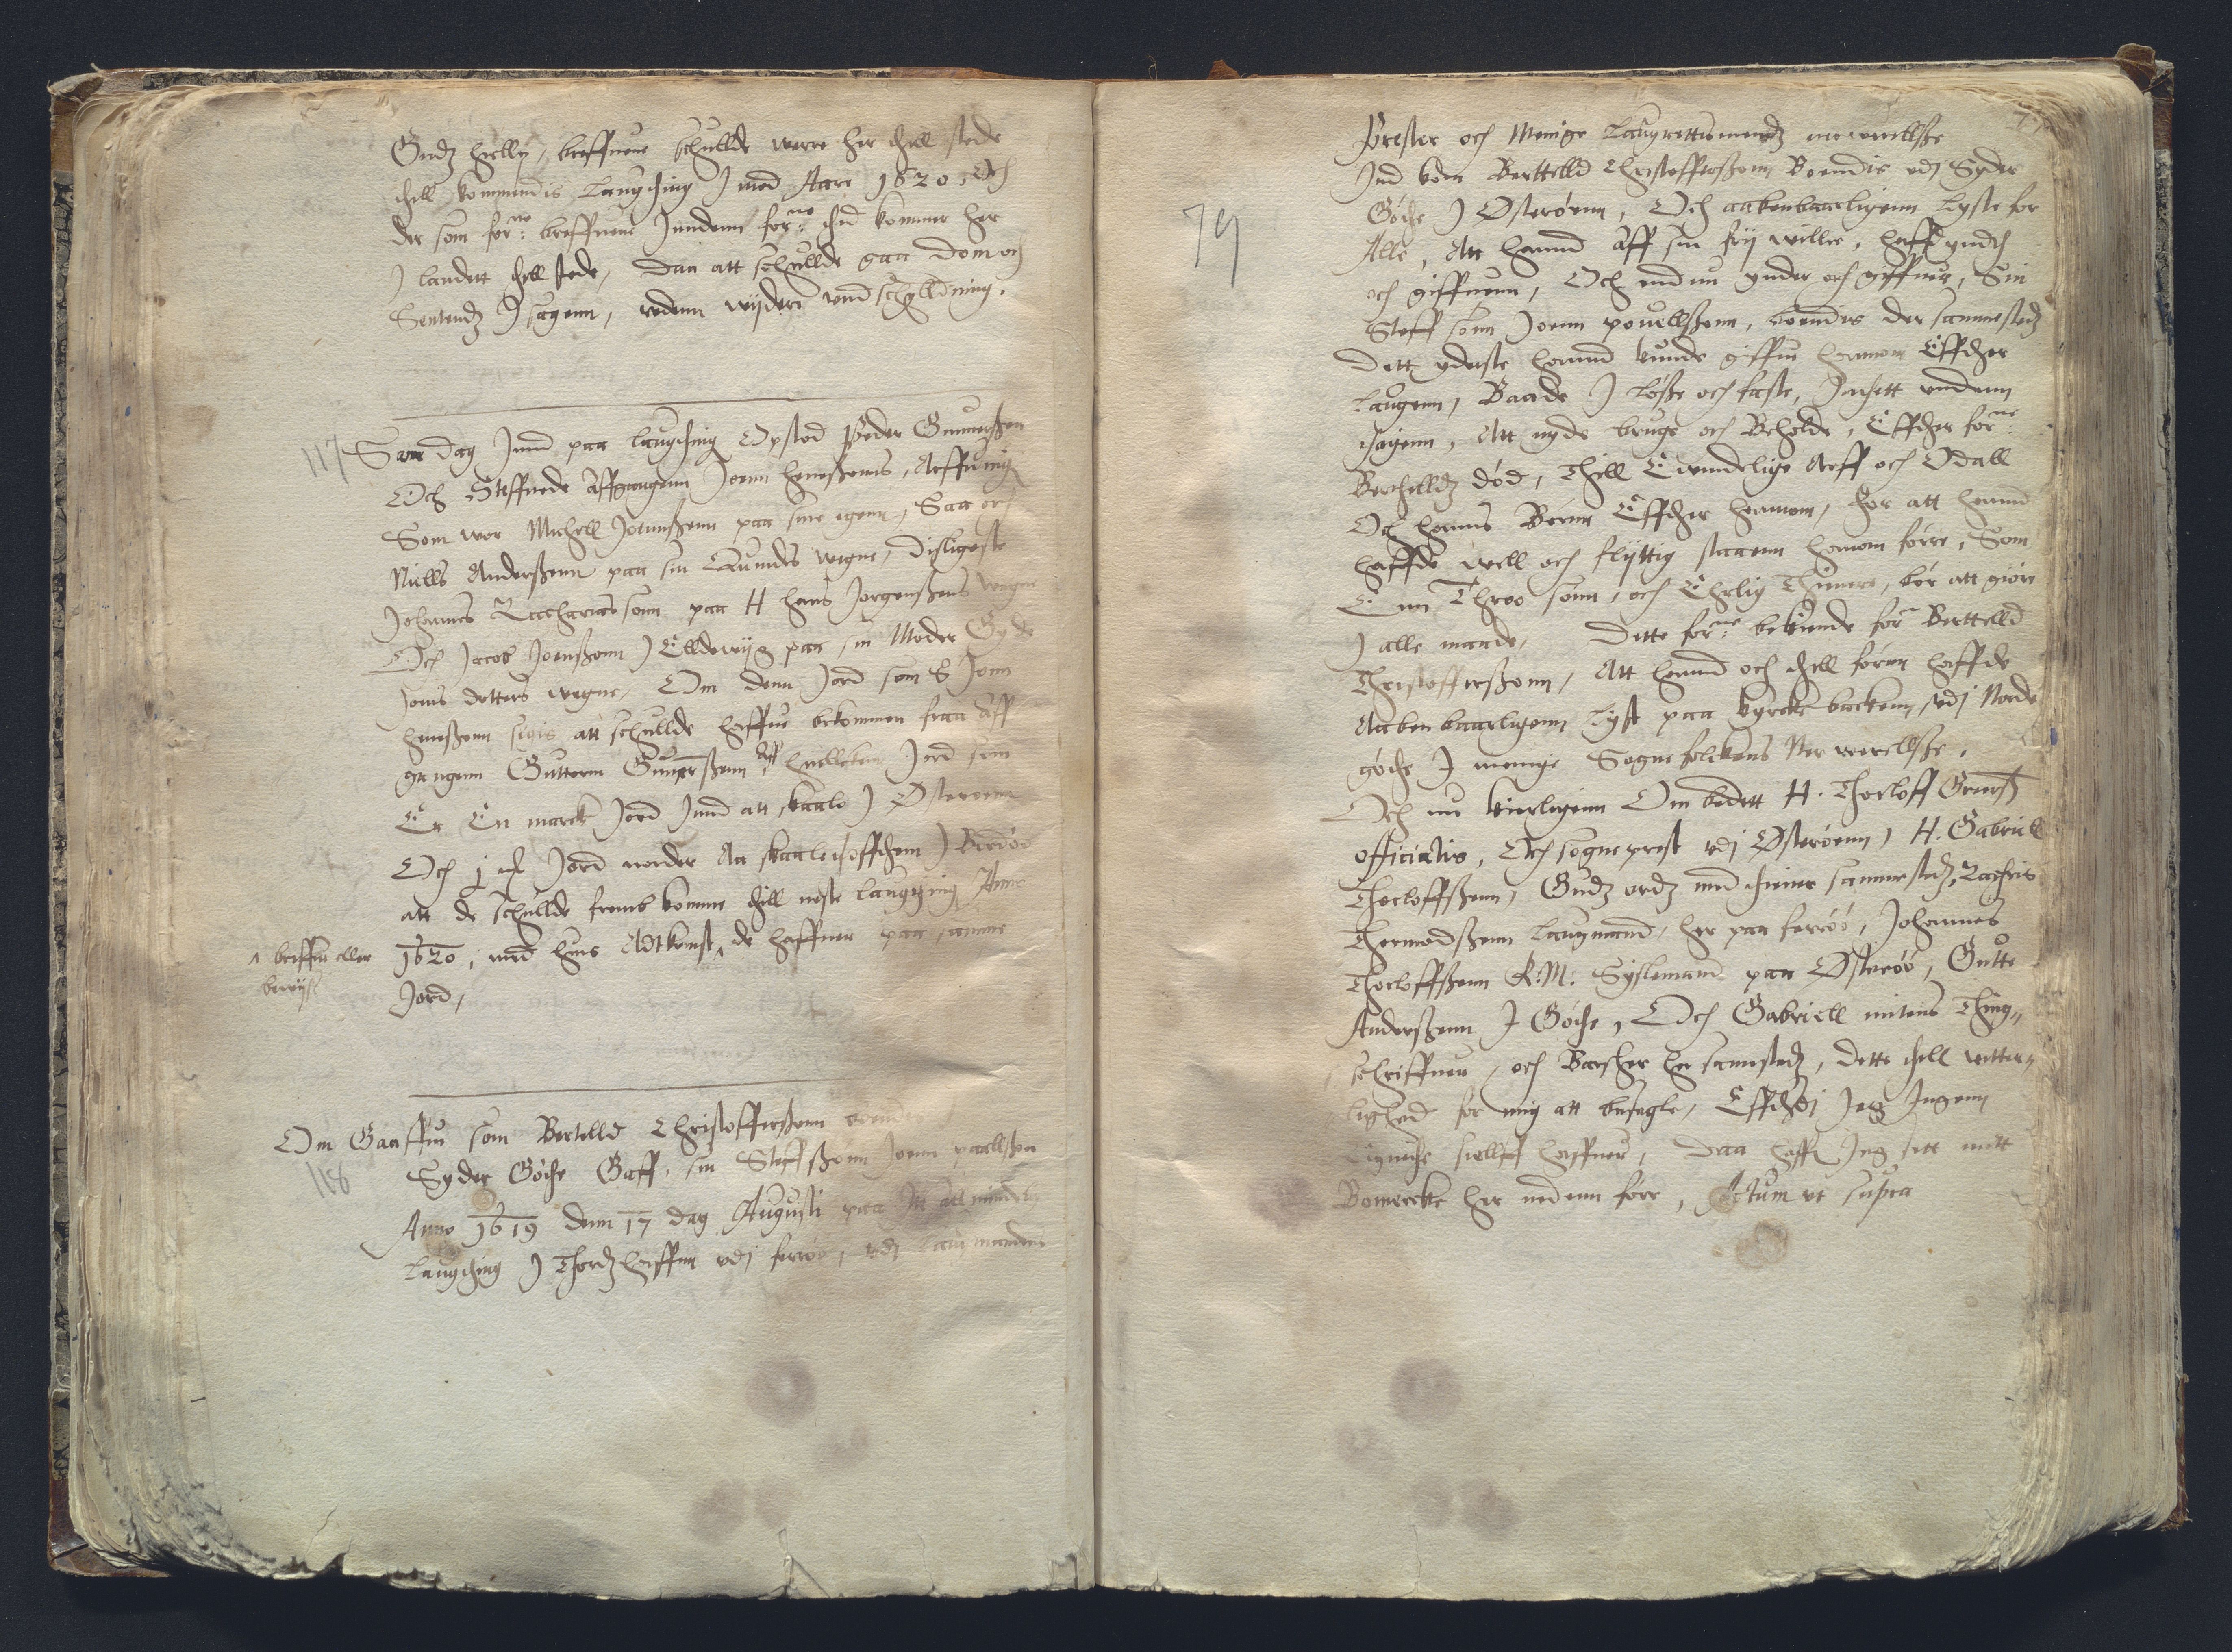 Gudz hielly, breffuene schullde werre her thill stede
thill kommendis Laugthing I med Aare 1620, Och
der som forne: breffuene Inndenn forne: thid kommer her
I landett thill stede, Daa att schullde gaa dom och
Sententz I sagenn, vdenn wijdere vndschylldning.
117
Same Dag Innd paa laugthing Opstod Peder Gunnerßen
Och Steffnede Affgangenn Joenn hansßenns, Arffuing
Som wor Michell Joennßenn paa sine egenn, Saa och
Niells Anderßenn paa sin Quindes wegne, Disligeste
Johannes Zachariassonn paa H hans Jørgenßens wegne
Och Jacob Joenßonn I Elldewijg paa sin Moder Gyde
Jons dotters wegne, Om denn Jord som S Jonn
hansßenn sigis att schullde haffue bekommen fraa Aff
gangenn Guttorm Gunnerßenn Aff huillcken Jord som
Er En marck Jord Innd att skaale I Østerøenn
Och j Jord norder Aa skaaletoffthem I Bordøø
att de schullde fremb komme thill neste laugthing Anno
1620, med hues Adtkomst ^ de haffuer paa samme
Jord,
^ breffue eller
beuijß
Om Gaaffue som Bertelld Christofferßenn
118
Sydre Gøthe Gaff, sin Steffßønn Joenn paallßen
Anno 1619 denn 17 dag Augusti paa Itt allmindelig
Laugthing I Thordzhaffnn vdj ferrøø, vdj Laugmandens
79
Prester och Menige Laugrettismendz neruerellße
Ind kom Berttelld Christofferßonn Boendis vdj Syder
Gøthe I Østerøenn, Och aabenbaarligenn Lyste for
Alle, Att hannd Aff sin frij willie, haffd yndth
och giffuenn, Och end nu ynder och giffuer, Sin
Steff sonn Joenn pouellßenn, boendis der sammestedz
Dett yderste hannd kunde giffue hannom Effther
Laugenn, Baade I Løße och faste, Inthett vndenn
thagenn, Att nyde bruge och Beholde, Effther forne:
Berthelldz død, Thill Ewindelige Arff och Odall
Och hanns Børnn Effther hannom, for att hannd
haffde well och flijttig staaenn honom førre, Som
Enn Throo sonn, och Ehrlig Thienere, bør att giøre
I alle maade, Dette forne: bekiende forne Berttelld
Christofferßonn, Att hannd och thill førnn haffde
Aabenbaarligenn Lyst paa kyrcke backenn, vdj Norde
gøthe I menige Sogne folckens Ner werellße.
Och nu kierligenn Om bedett H. Thorloff Grerß
officialis, Och sogneprest vdj Østerøenn, H. Gabriell
Thorloffßenn, Gudz ordz med thiener sammestedz, Zachris
Thormodßenn Laugmand, her paa ferrøø, Johannes
Thorloffßenn K: M: Syslemand paa Østerøø, Gutte
Anderßenn I Gøthe, Och Gabriell mitens Thing„
schriffuer, och Barther her sammestedz, dette thill vitter„
lighed for mig att besegle, Effthj Jeg Ingenn
signethe siellff haffuer, Daa haffr Jeg sett mitt
Bomercke her nedenn førr, Actum ut supra